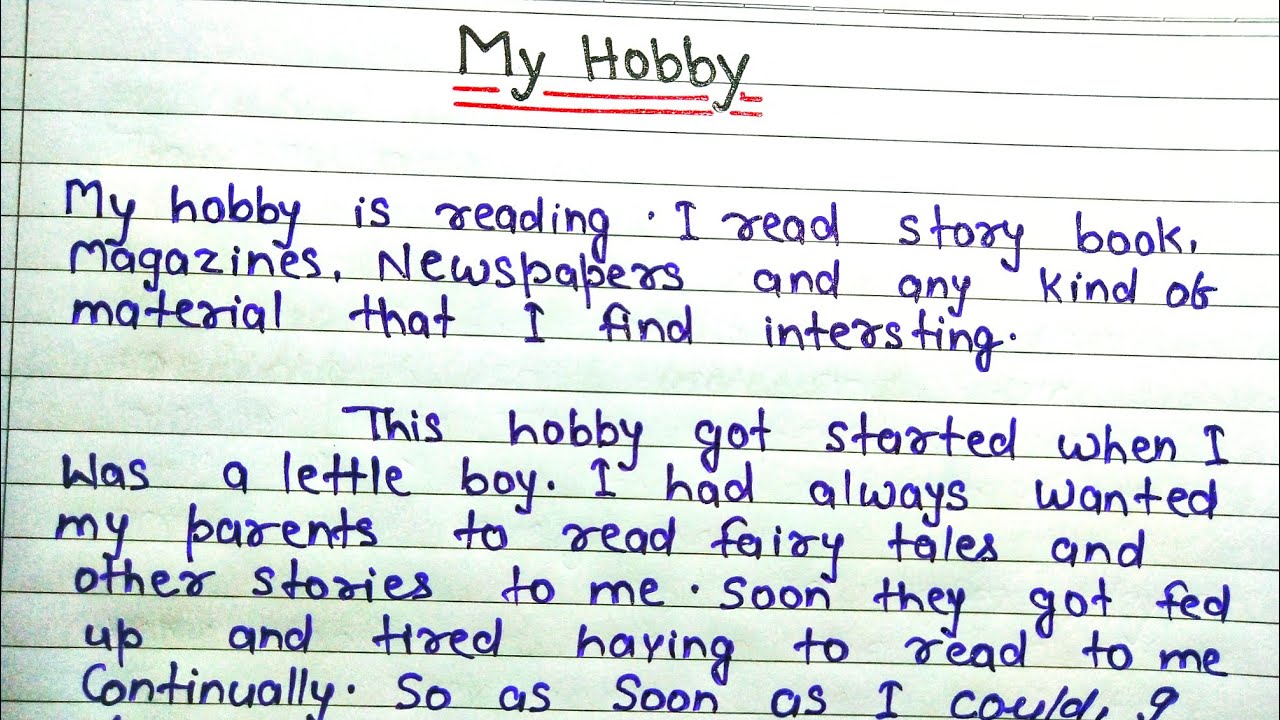 My Hobby
My hobby is reading. I read story book,
Magazines, Newspapers and any kind of
material that I find intersting.
This hobby got started when I
was a lettle boy. I had always wanted
my parents to read fairy tales and
other stories to me. Soon they got fed
up and tired having to read to me
Continually. So as soon as I could,